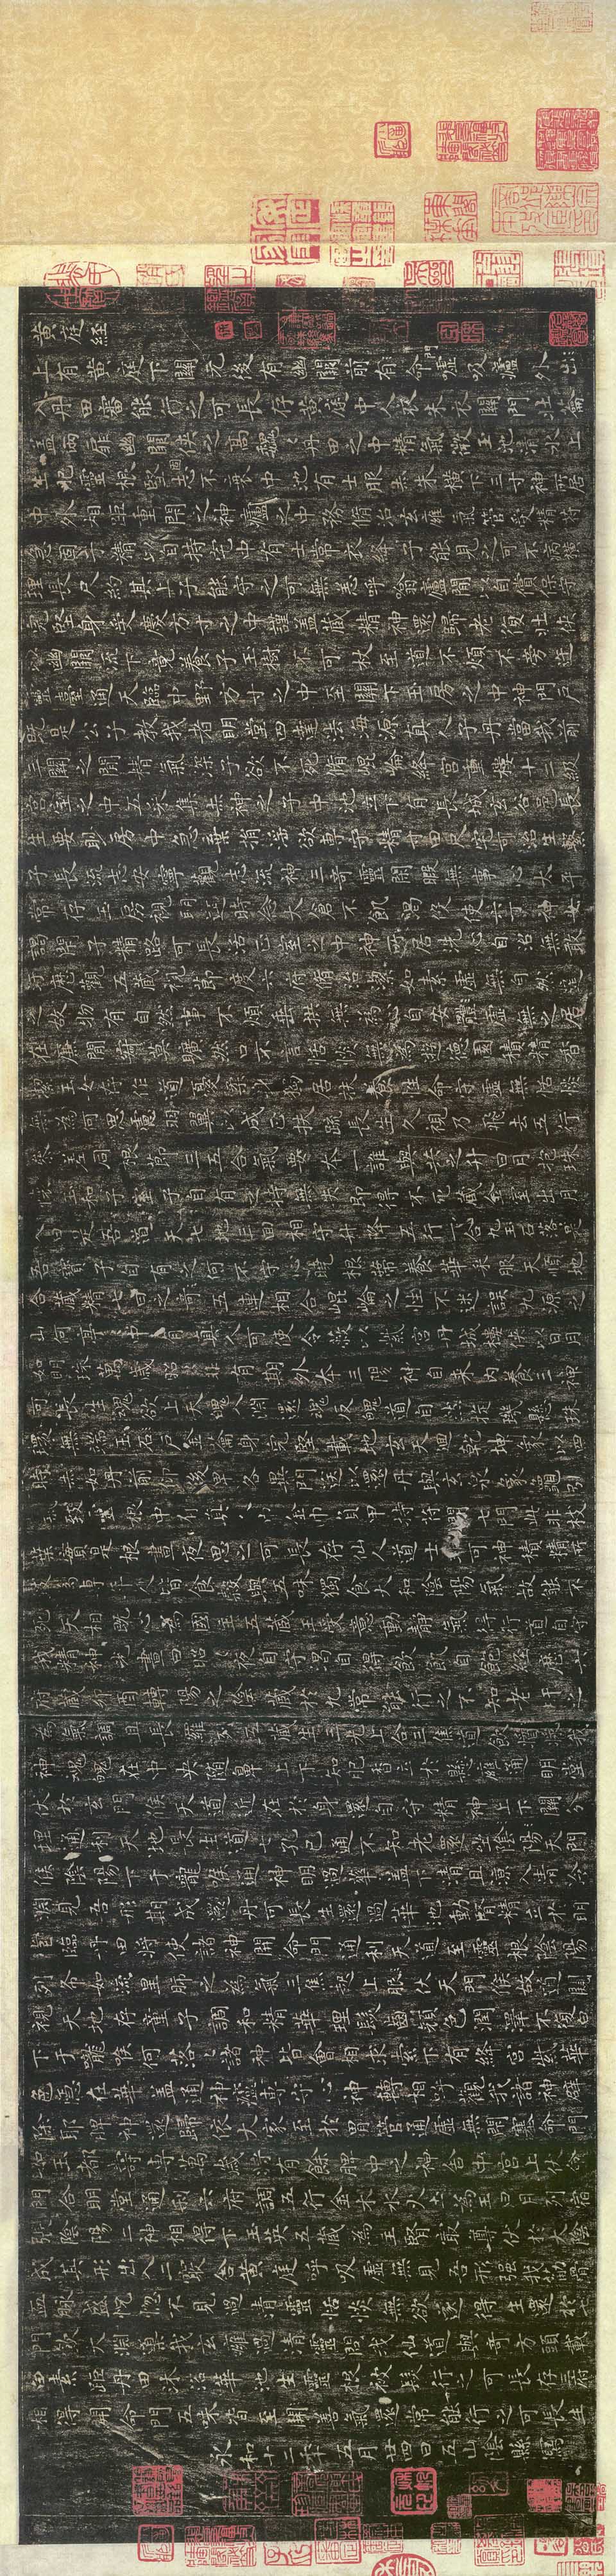 黄庭経
上有黄庭下關元後有幽闕前有命門噓吸廬外出
入丹田審能行之可長存黄庭中人衣朱衣關門壯籥
蓋兩扉幽闕俠之高魏魏丹田之中精氣微玉池清水上
生肥靈根堅志不衰中池有士服赤朱横下三寸神所居
中外相距重閉之神廬之中務脩治玄癰氣管受精符
急固子精以自持宅中有士常衣絳子能見之可不病横
理長尺約其上子能守之可無恙呼噏廬閒以自償保守
完堅身受慶方寸之中謹蓋藏精神還歸老復壯俠
以幽闕流下竟養子玉樹不可杖至道不煩不旁迕
靈臺通天臨中野方寸之中至關下玉房之中神門戶
既是公子教我者明堂四達法海源真人子丹當我前
三關之閒精氣深子欲不死脩崐崘絳宮重樓十二級
宮室之中五采集赤神之子中池立下有長城玄谷邑長
生要眇房中急棄捐淫欲専守精寸田尺宅可治生繋
子長流志安寧觀志流神三奇靈閑暇無事心太平
常存玉房視明達時念大倉不飢渴役使六丁神女
謁閉子精路可長活正室之中神所居洗心自治無敢
汙歷觀五藏視節度六府脩治潔如素虛無自然道
之故物有自然事不煩垂拱無為心自安體虛無之居
在廉閒寂莫曠然口不言恬惔無為遊德園積精香
潔玉女存作道憂柔身獨居扶養性命守虛無恬惔
無為何思慮羽翼以成正扶疏長生久視乃飛去五行
參差同根節三五合氣要本一誰與共之升日月抱珠
懷玉和子室子自有之持無失即得不死藏金室出月
入日是吾道天七地三回相守升降五行一合九玉石落落是
吾寶子自有之何不守心曉根蔕養華采服天順地
合藏精七日之奇五連相合崐崘之性不迷誤九源之
山何亭亭中有真人可使令蔽以紫宮丹城樓俠以日月
如明珠萬歲昭昭非有期外本三陽神自來内養三神
可長生魂欲上天魄入淵還魂反魄道自然旋璣懸珠
環無端玉石戶金籥身完堅載地玄天迴乾坤象以四
時赤如丹前仰後卑各異門送以還丹與玄泉象龜引
氣致靈根中有真人巾金巾負甲持符開七門此非枝
葉實是根晝夜思之可長存仙人道士非可神積精所
致為專年人皆食穀與五味獨食大和陰陽氣故能不
死天相既心為國主五藏王受意動靜氣得行道自守
我精神光晝日昭昭夜自守渴自得飲飢自飽經歷六
府藏卯酉轉陽之陰藏於九常能行之不知老肝之
為氣調且長羅列五藏生三光上合三焦道飲醬漿我
神魂魄在中央隨鼻上下知肥香立於懸雍通明堂
伏於玄門候天道近在於身還自守精神上下關分
理通利天地長生道七孔已通不知老還坐陰陽天門
候陰陽下于嚨喉通神明過華蓋下清且涼入清泠
淵見吾形期成還丹可長生還過華池動腎精立於明
堂臨丹田將使諸神開命門通利天道至靈根陰陽
列布如流星肺之為氣三焦起上服伏天門候故道闚
視天地存童子調和精華理髮齒顏色潤澤不復白
下于嚨喉何落落諸神皆會相求索下有絳宮紫華
色隱在華蓋通神廬専守心神轉相呼觀我諸神辟
除耶脾神還歸依大家至於胃管通虛無閉塞命門
如玉都壽専萬歲將有餘脾中之神舍中宮上伏命
門合明堂通利六府調五行金木水火土為王日月列宿
張陰陽二神相得下玉英五藏為主腎最尊伏於大陰
成其形出入二竅舍黄庭呼吸虛無見吾形強我筋骨
血脈盛恍惚不見過清靈恬惔無欲遂得生還於七
門飲大淵導我玄雍過清靈問我仙道與奇方頭載
白素距丹田沐浴華池生靈根被髮行之可長存三府
相得開命門五味皆至開善氣還常能行之可長生
永和十二年五月廿四日五山陰縣寫